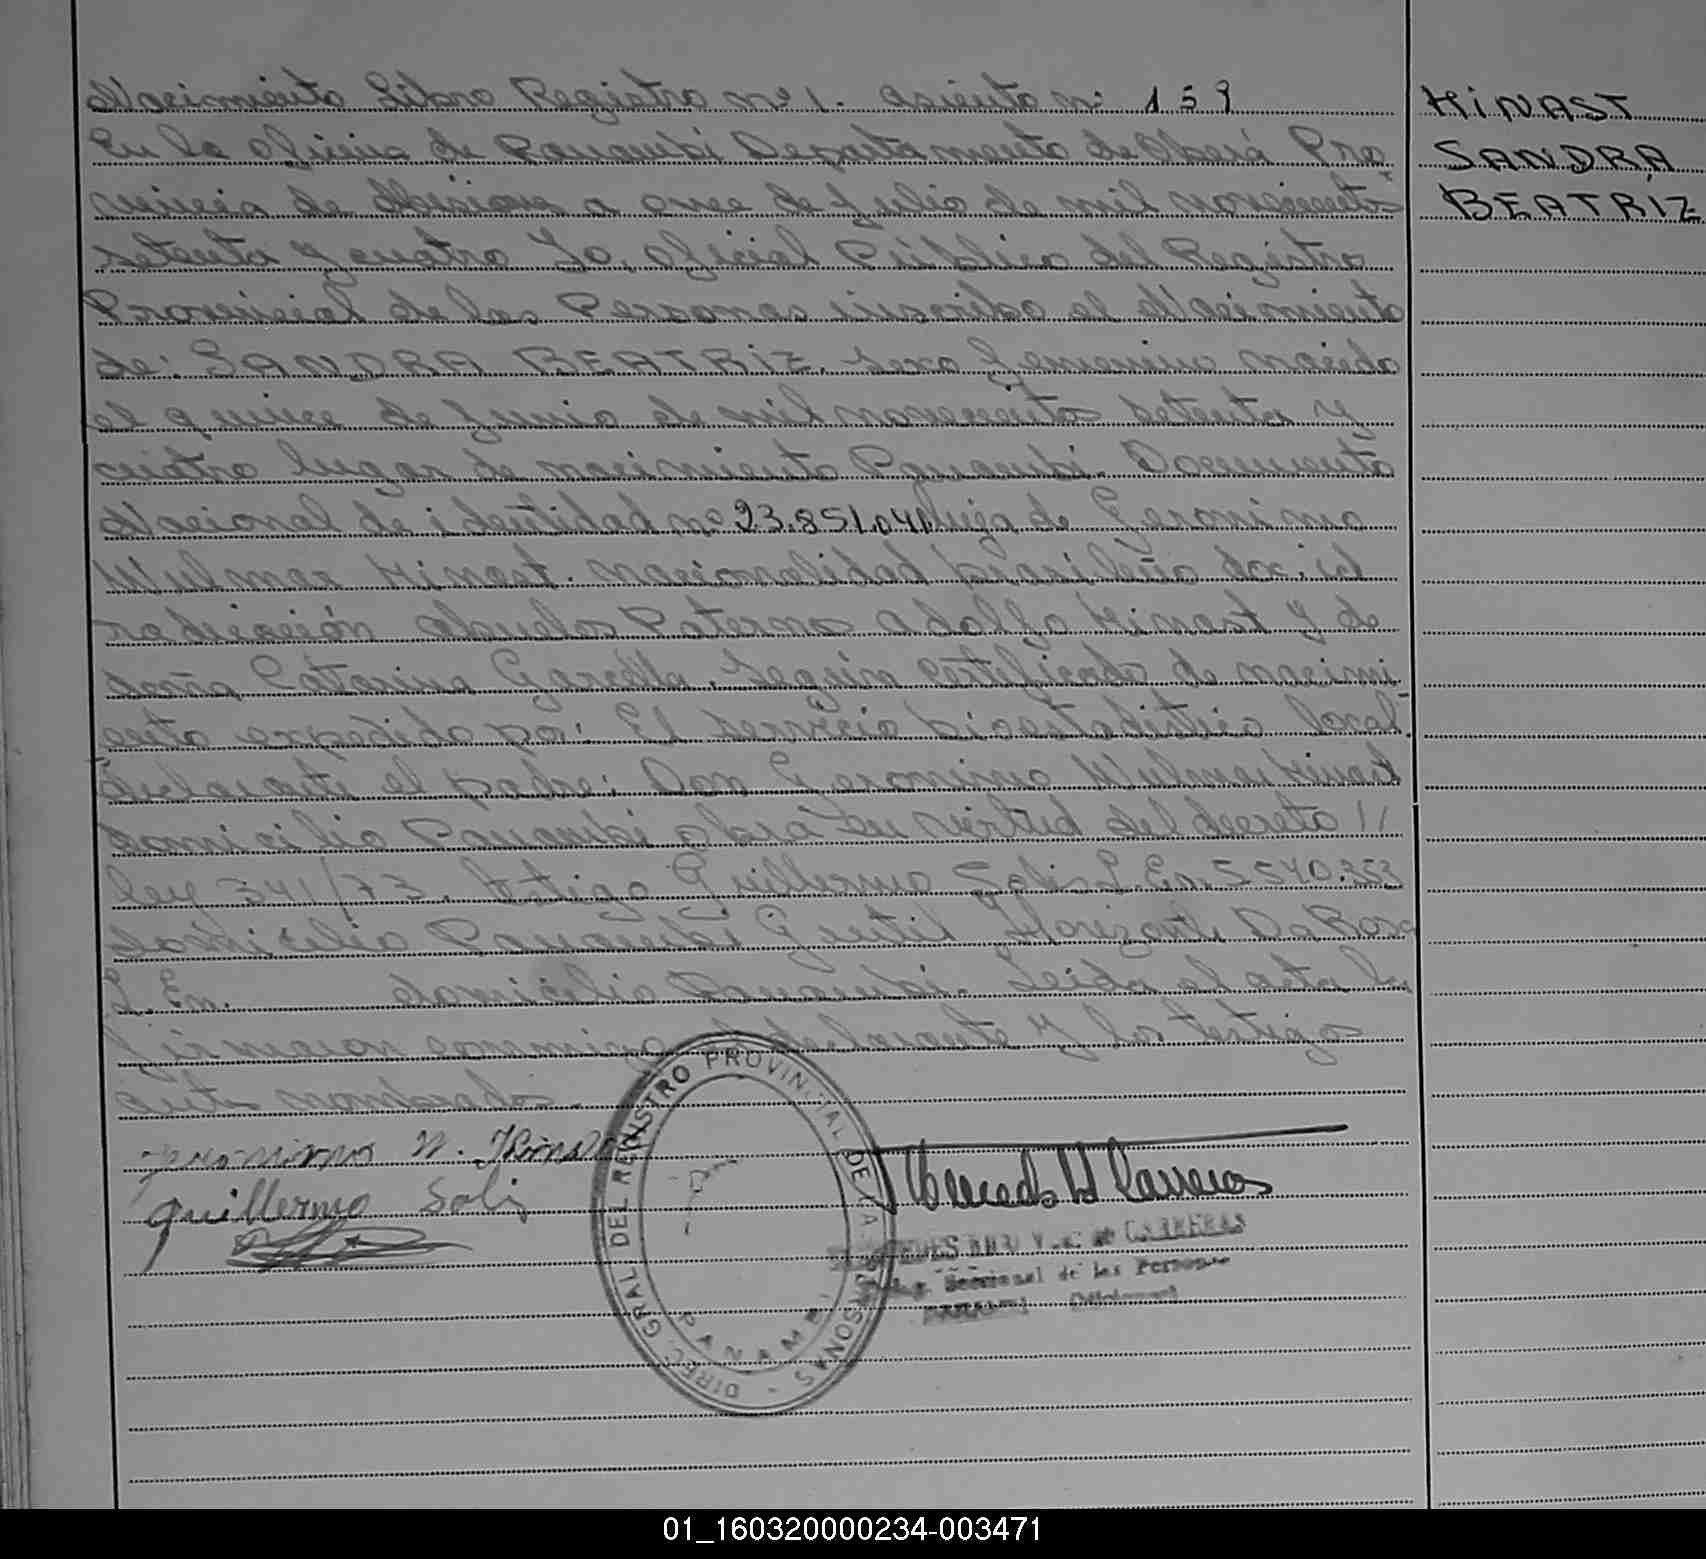 Nacimiento Libro Registro nº 1. asiento nº 159
En la oficina de Panambi Departamento de Oberá Pro
vincia de Misiones a once de Julio de mil novecientos
setenta y cuatro Yo, oficial Público del Registro
Provincial de las Personas inscribo el Nacimiento
de: SANDRA BEATRIZ. sexo femenino nacido
el quince de Junio de mil novecientos setenta y
cuatro lugar de nacimiento Panambi. Documento
Nacional de identidad nº 23.851.041 hija de Geronimo
Wulmar Hinast. nacionalidad brasileño doc. id
radicación abuelos Paternos adolfo Hinast y de
doña Catarina Garcilla. Seguin certificado de nacimi
ento expedido por: El servicio bioestadistico local.
declarante el padre: Don Geronimo Wulmar Hinast
domicilio Panambi obra en virtud del decreto
ley 341/73. testigo Guillermo Solis L.En. 5540.353
domicilio Panambi Gentil Da Rosa
L.En. domicilio Panambi. Leida el acta la
firmaron conmigo el declarante y los testigos
antes nombrados.
Jeronimo W. Hinast
Guillermo Solis
HINAST
SANDRA
BEATRIZ
DIREC. GRAL DEL REGISTRO PROVINCIAL DE LAS PERSONAS -
PANAMBI
CARRERAS
Seccional de las Personas
01_160320000234-003471